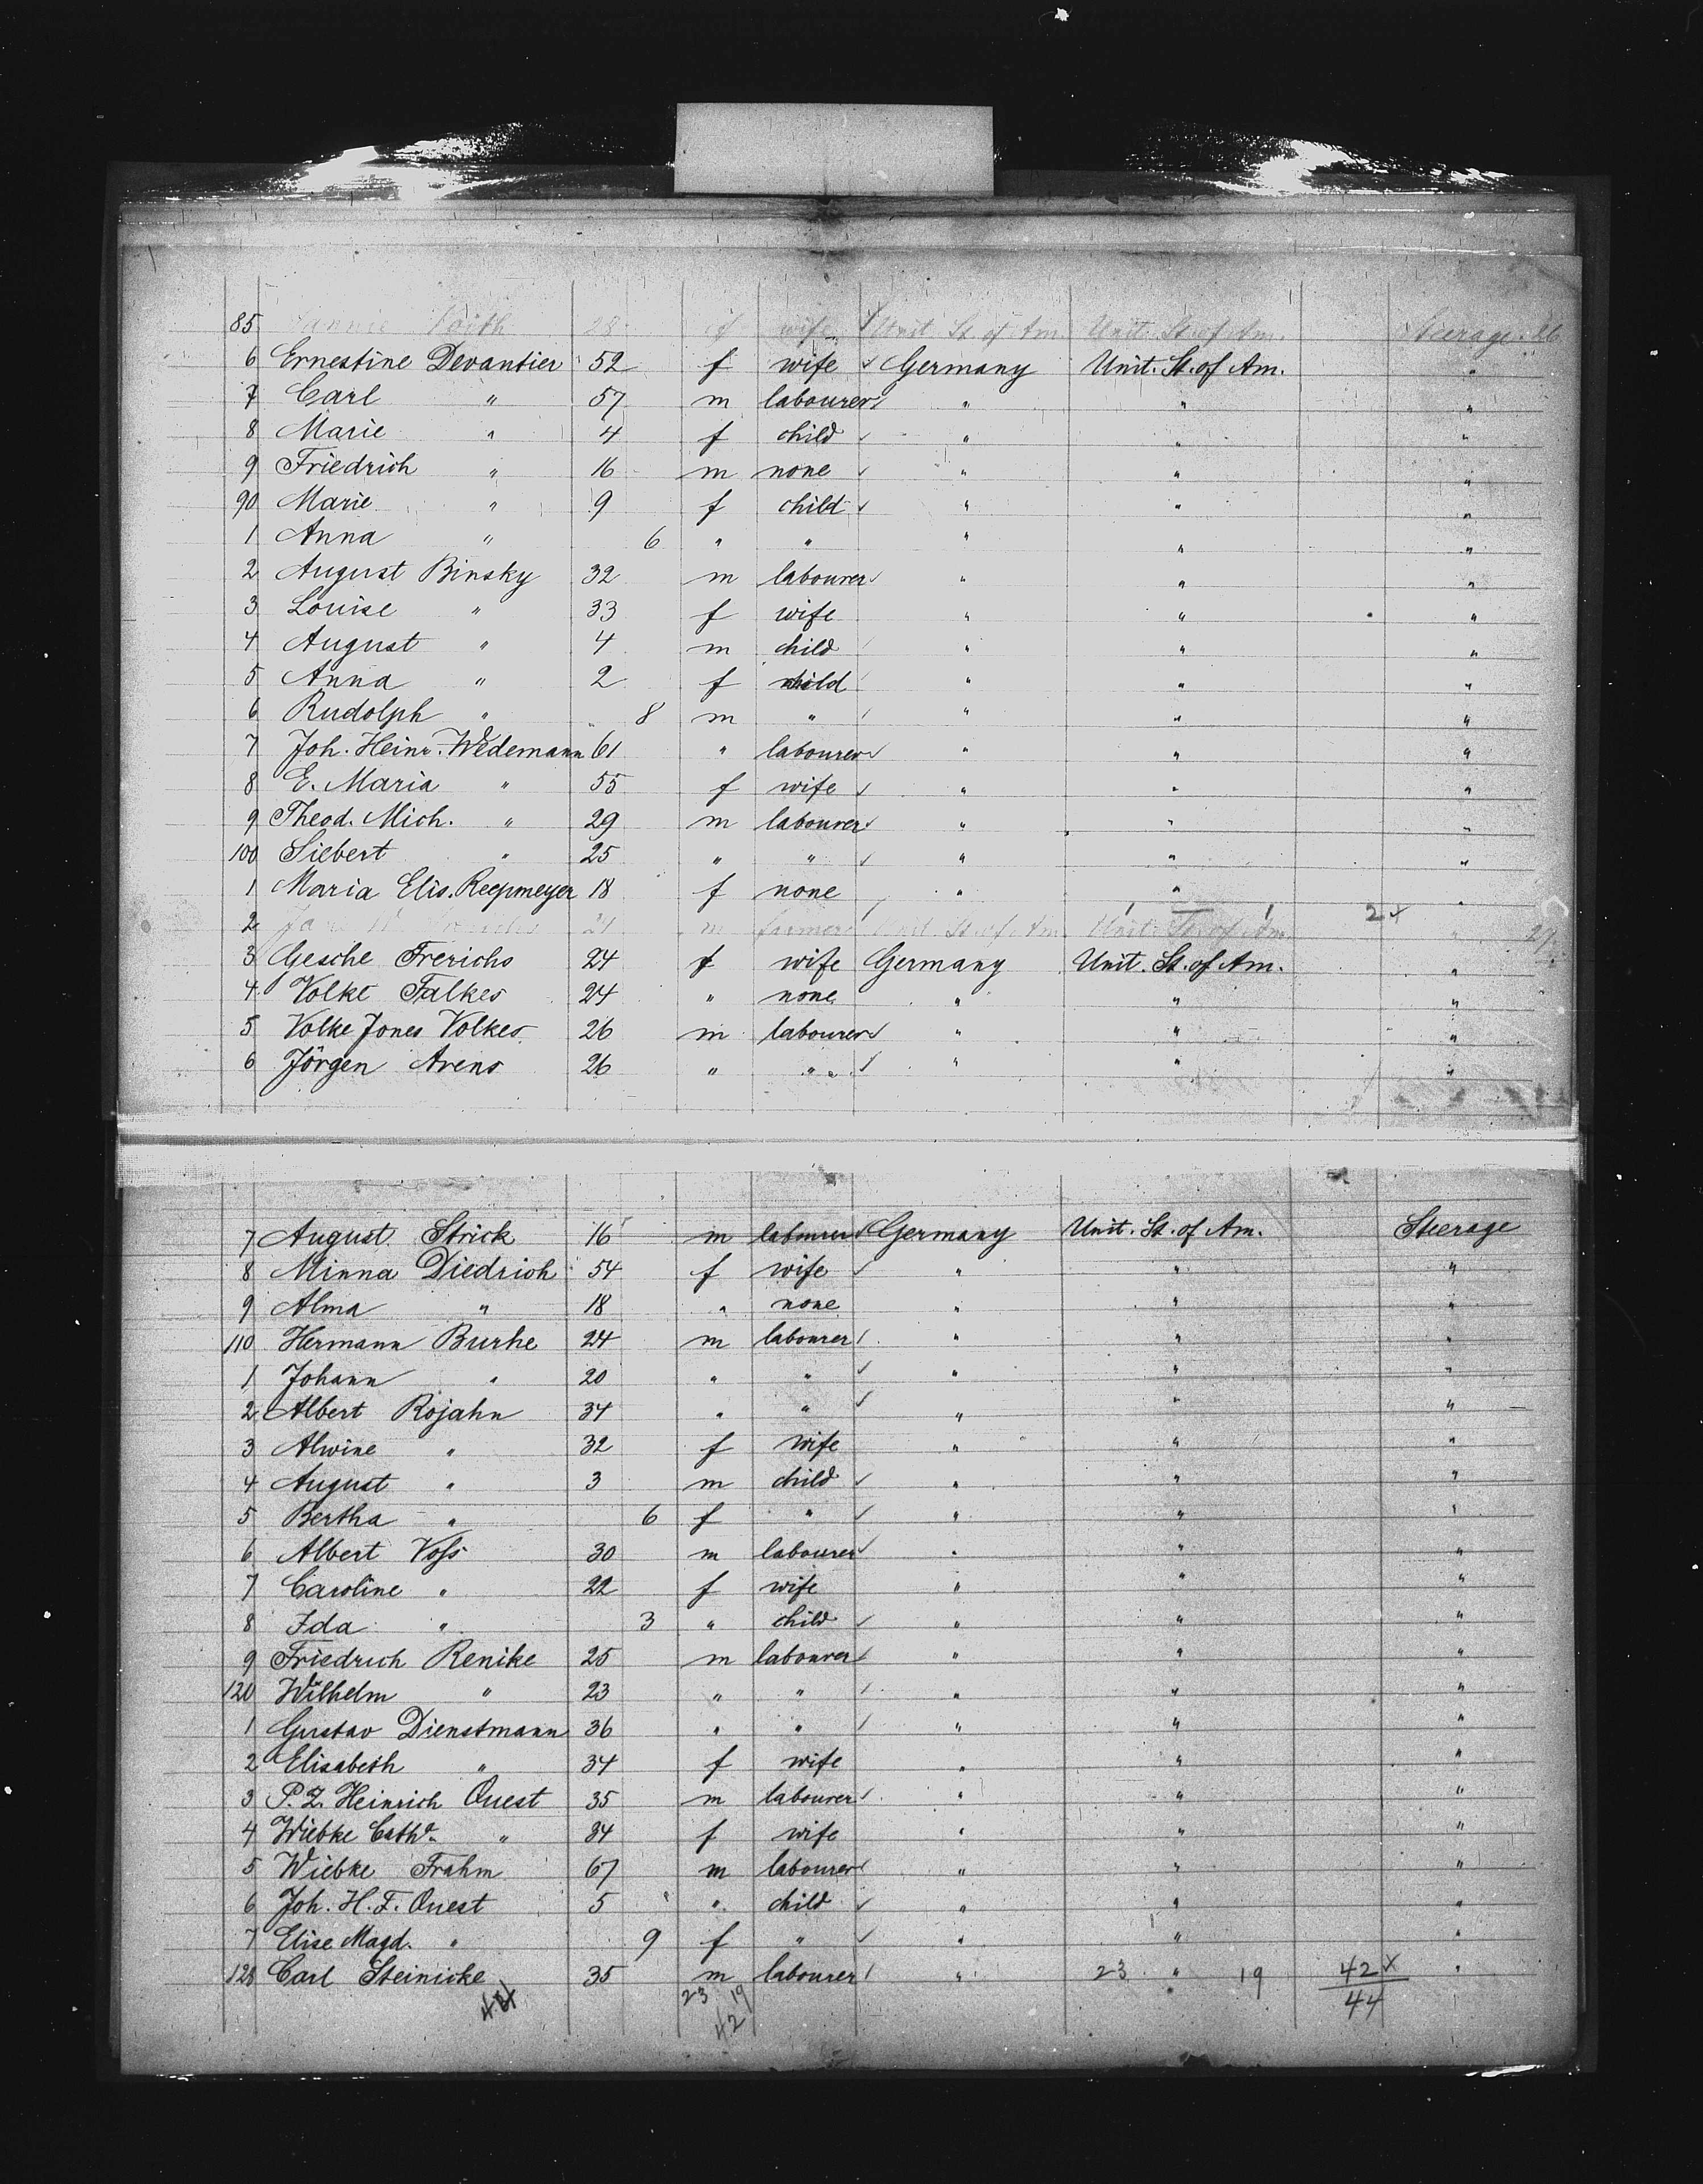 85 28 f wife Unit. St. of Am. Unit. St. of Am. Steerage. 26
6 Ernestine Devantier 52 f wife ✓ Germany Unit. St. of Am. "
7 Carl " 57 m labourer ✓ " " "
8 Marie " 4 f child ✓ " " "
9 Friedrich " 16 m none ✓ " " "
90 Marie " 9 f child ✓ " " "
1 Anna " 6 " " " " "
2 August Binsky 32 m labourer ✓ " " "
3 Louise " 33 f wife " " "
4 August " 4 m child " " "
5 Anna " 2 f child " " "
6 Rudolph " " 8 m " " " "
7 Joh. Heinr. Wedemann 61 " labourer ✓ " " "
8 E. Maria " 55 f wife ✓ " " "
9 Theod. Mich. " 29 m labourer ✓ " " "
100 Siebert " 25 " " ✓ " " "
1 Maria Elis. Reepmeyer 18 f none " " "
2 m farmer Unit. St. of Am. Unit. St. of Am. 2 x "
3 Gesche Frerichs 24 f wife Germany Unit. St. of Am. "
4 Volke Falkes 24 " none " " "
5 Volke Jones Volkes 26 m labourer ✓ " " "
6 Jörgen Arens 26 " " ✓ " " "
7 August Strick 16 m labourer ✓ Germany Unit. St. of Am. Steerage
8 Minna Diedrich 54 f wife ✓ " " "
9 Alma " 18 " none " " "
110 Hermann Burhe 24 m labourer ✓ " " "
1 Johann " 20 " " ✓ " " "
2 Albert Rojahn 34 " " ✓ " " "
3 Alwine " 32 f wife " " "
4 August " 3 m child ✓ " " "
5 Bertha " 6 f " ✓ " " "
6 Albert Voss 30 m labourer ✓ " " "
7 Caroline " 22 f wife " " "
8 Ida " 3 " child ✓ " " "
9 Friedrich Renike 25 m labourer ✓ " " "
120 Wilhelm " 23 " " ✓ " " "
1 Gustav Dienstmann 36 " " ✓ " " "
2 Elisabeth " 34 f wife " " "
3 P. Z. Heinrich Quest 35 m labourer ✓ " " "
4 Wiebke Cath. " 34 f wife " " "
5 Wiebke Frahm 67 m labourer ✓ " " "
6 Joh. H. F. Quest 5 " " child ✓ " " "
7 Elise Magd. " 9 f " ✓ " " "
128 Carl Steinicke 35 m labourer ✓ " 23 " 19 42 x "
23 19 44
42